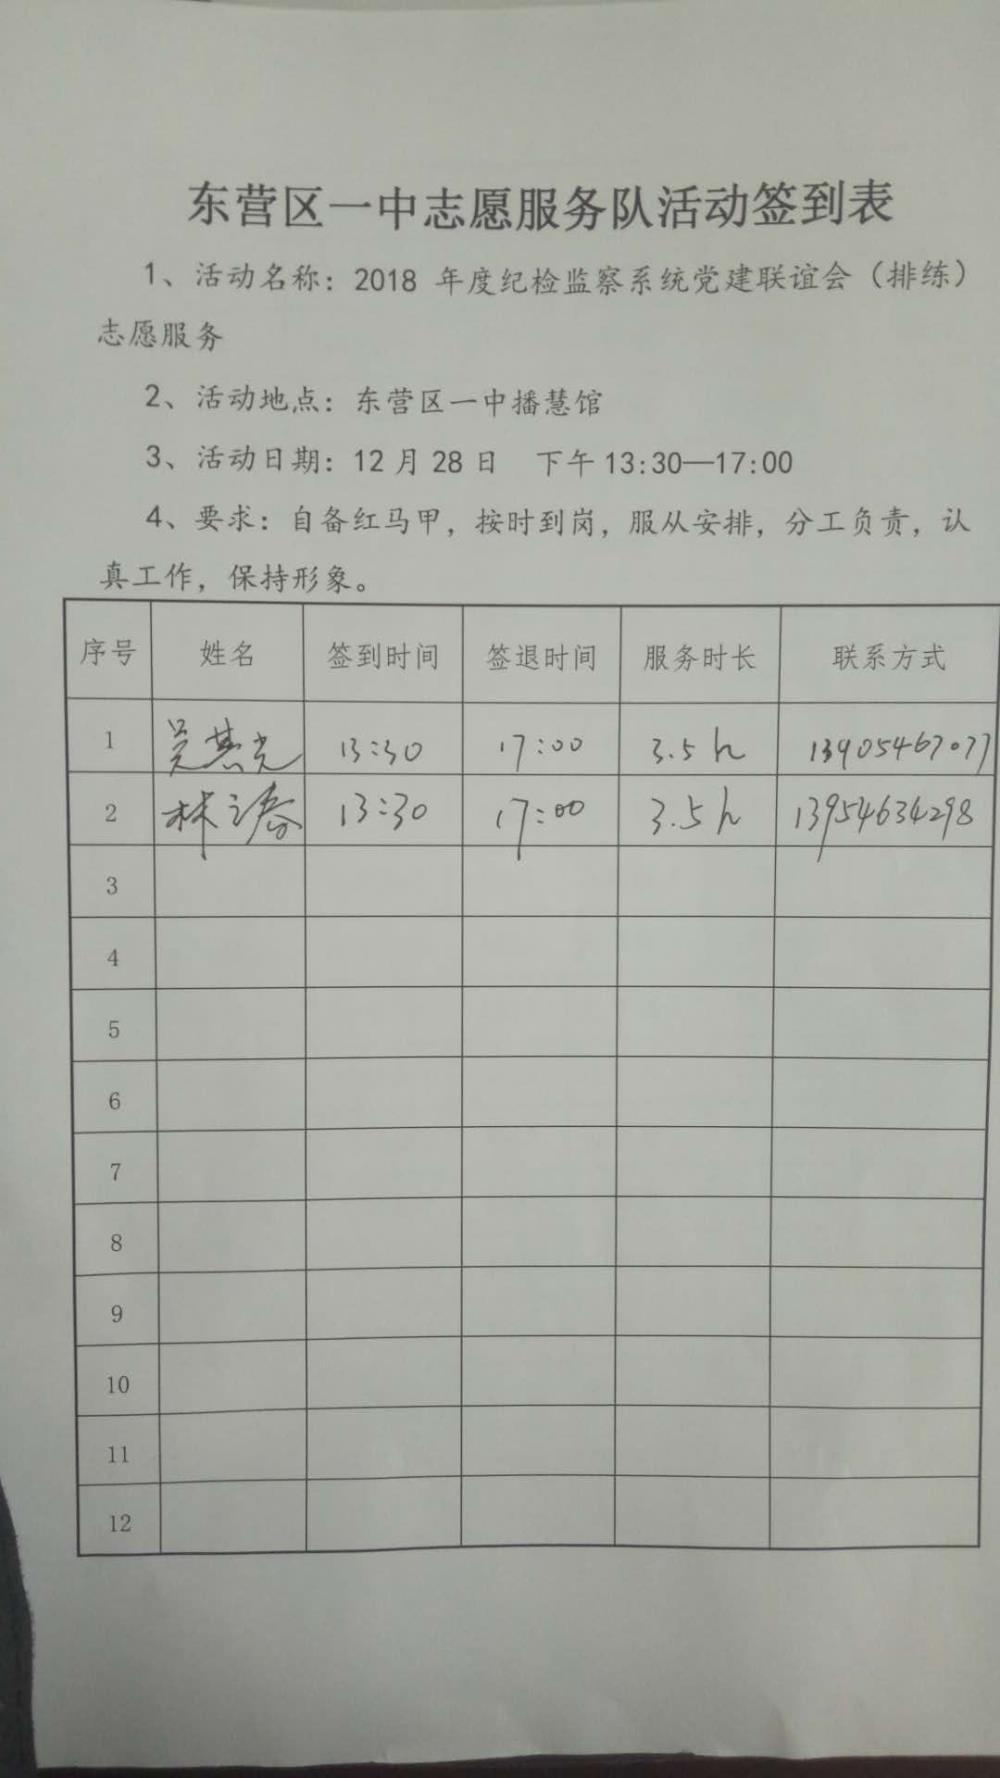 东营区一中志愿服务队活动签到表
1、活动名称：2018 年度纪检监察系统党建联谊会（排练）
志愿服务
2、活动地点：东营区一中播慧馆
3、活动日期：12月28日 下午13:30—17:00
4、要求：自备红马甲，按时到岗，服从安排，分工负责，认
真工作，保持形象。
序号 姓名 签到时间 签退时间 服务时长 联系方式
1 吴慧光 13:30 17:00 3.5h 13905467077
2 林 13:30 17:00 3.5h 13954634298
3
4
5
6
7
8
9
10
11
12